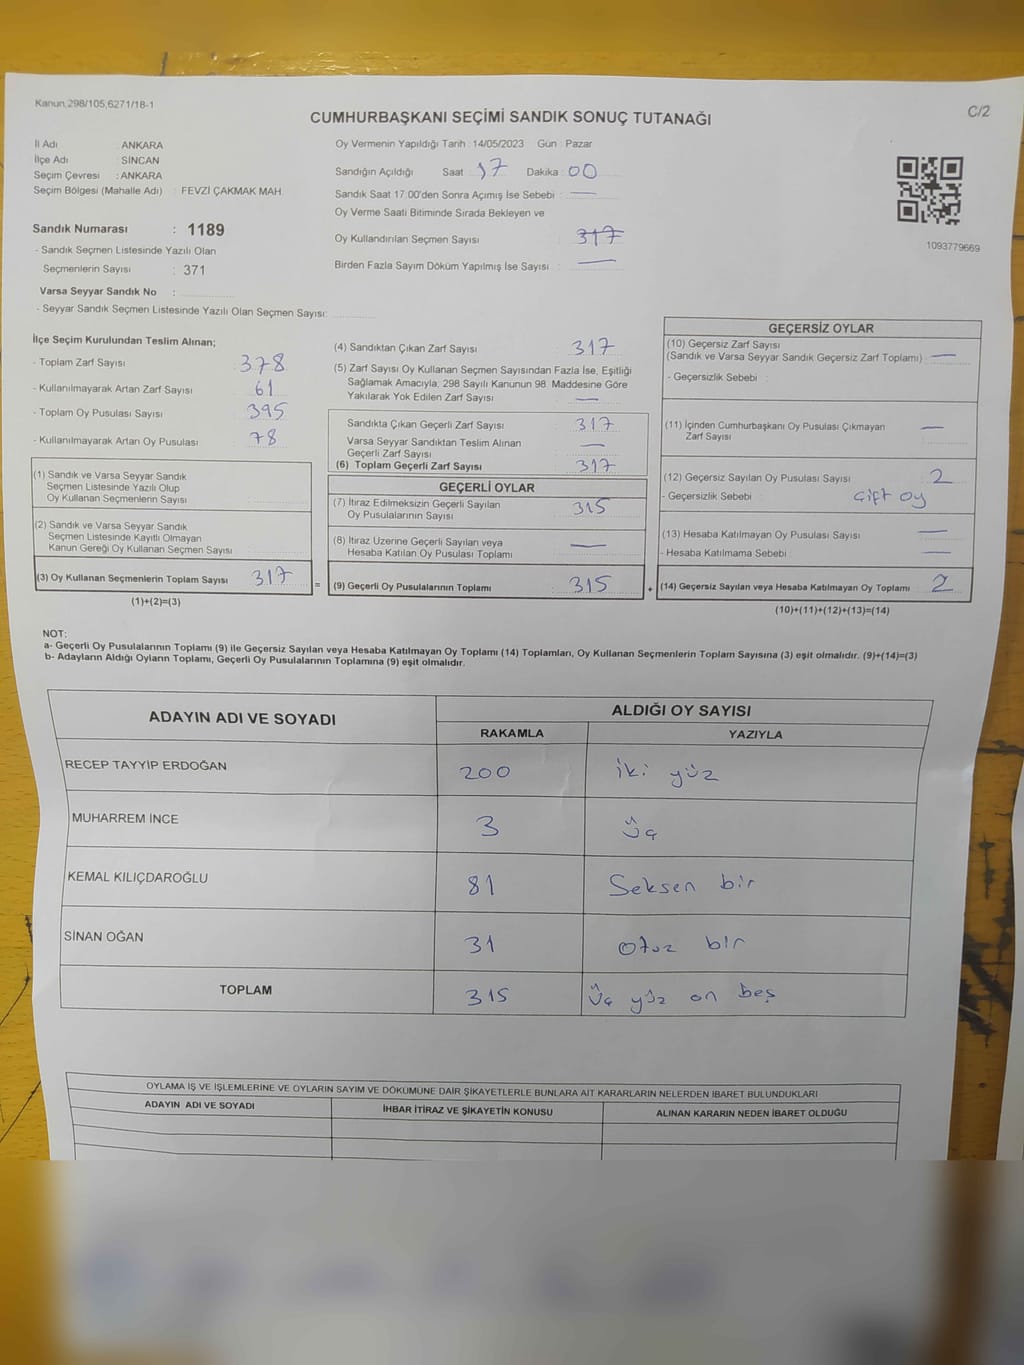 Kanun,298/105,6271/18-1
C/2
CUMHURBAŞKANI SEÇİMİ SANDIK SONUÇ TUTANAĞI
İl Adı : ANKARA
İlçe Adı : SİNCAN
Seçim Çevresi : ANKARA
Seçim Bölgesi (Mahalle Adı) : FEVZİ ÇAKMAK MAH.
Sandık Numarası : 1189
- Sandık Seçmen Listesinde Yazılı Olan
Seçmenlerin Sayısı : 371
Varsa Seyyar Sandık No :
- Seyyar Sandık Seçmen Listesinde Yazılı Olan Seçmen Sayısı:
Oy Vermenin Yapıldığı Tarih : 14/05/2023 Gün : Pazar
Sandığın Açıldığı Saat : 17 Dakika : 00
Sandık Saat 17:00'den Sonra Açılmış İse Sebebi : —
Oy Verme Saati Bitiminde Sırada Bekleyen ve
Oy Kullandırılan Seçmen Sayısı : 317
Birden Fazla Sayım Döküm Yapılmış İse Sayısı : —
1093779669
İlçe Seçim Kurulundan Teslim Alınan;
- Toplam Zarf Sayısı : 378
- Kullanılmayarak Artan Zarf Sayısı : 61
- Toplam Oy Pusulası Sayısı : 395
- Kullanılmayarak Artan Oy Pusulası : 78
(1) Sandık ve Varsa Seyyar Sandık
Seçmen Listesinde Yazılı Olup
Oy Kullanan Seçmenlerin Sayısı
(2) Sandık ve Varsa Seyyar Sandık
Seçmen Listesinde Kayıtlı Olmayan
Kanun Gereği Oy Kullanan Seçmen Sayısı
(3) Oy Kullanan Seçmenlerin Toplam Sayısı 317 =
(1)+(2)=(3)
(4) Sandıktan Çıkan Zarf Sayısı : 317
(5) Zarf Sayısı Oy Kullanan Seçmen Sayısından Fazla İse, Eşitliği
Sağlamak Amacıyla, 298 Sayılı Kanunun 98. Maddesine Göre
Yakılarak Yok Edilen Zarf Sayısı : —
Sandıkta Çıkan Geçerli Zarf Sayısı : 317
Varsa Seyyar Sandıktan Teslim Alınan
Geçerli Zarf Sayısı : —
(6) Toplam Geçerli Zarf Sayısı : 317
GEÇERLİ OYLAR
(7) İtiraz Edilmeksizin Geçerli Sayılan
Oy Pusulalarının Sayısı : 315
(8) İtiraz Üzerine Geçerli Sayılan veya
Hesaba Katılan Oy Pusulası Toplamı : —
(9) Geçerli Oy Pusulalarının Toplamı : 315 +
GEÇERSİZ OYLAR
(10) Geçersiz Zarf Sayısı
(Sandık ve Varsa Seyyar Sandık Geçersiz Zarf Toplamı) : —
- Geçersizlik Sebebi :
(11) İçinden Cumhurbaşkanı Oy Pusulası Çıkmayan
Zarf Sayısı : —
(12) Geçersiz Sayılan Oy Pusulası Sayısı : 2
- Geçersizlik Sebebi : Çift oy
(13) Hesaba Katılmayan Oy Pusulası Sayısı : —
- Hesaba Katılmama Sebebi : —
(14) Geçersiz Sayılan veya Hesaba Katılmayan Oy Toplamı : 2
(10)+(11)+(12)+(13)=(14)
NOT:
a- Geçerli Oy Pusulalarının Toplamı (9) ile Geçersiz Sayılan veya Hesaba Katılmayan Oy Toplamı (14) Toplamları, Oy Kullanan Seçmenlerin Toplam Sayısına (3) eşit olmalıdır. (9)+(14)=(3)
b- Adayların Aldığı Oyların Toplamı, Geçerli Oy Pusulalarının Toplamına (9) eşit olmalıdır.
ADAYIN ADI VE SOYADI ALDIĞI OY SAYISI
RAKAMLA YAZIYLA
RECEP TAYYİP ERDOĞAN 200 iki yüz
MUHARREM İNCE 3 Üç
KEMAL KILIÇDAROĞLU 81 Seksen bir
SİNAN OĞAN 31 Otuz bir
TOPLAM 315 Üç yüz on beş
OYLAMA İŞ VE İŞLEMLERİNE VE OYLARIN SAYIM VE DÖKÜMÜNE DAİR ŞİKAYETLERLE BUNLARA AİT KARARLARIN NELERDEN İBARET BULUNDUKLARI
ADAYIN ADI VE SOYADI İHBAR İTİRAZ VE ŞİKAYETİN KONUSU ALINAN KARARIN NEDEN İBARET OLDUĞU